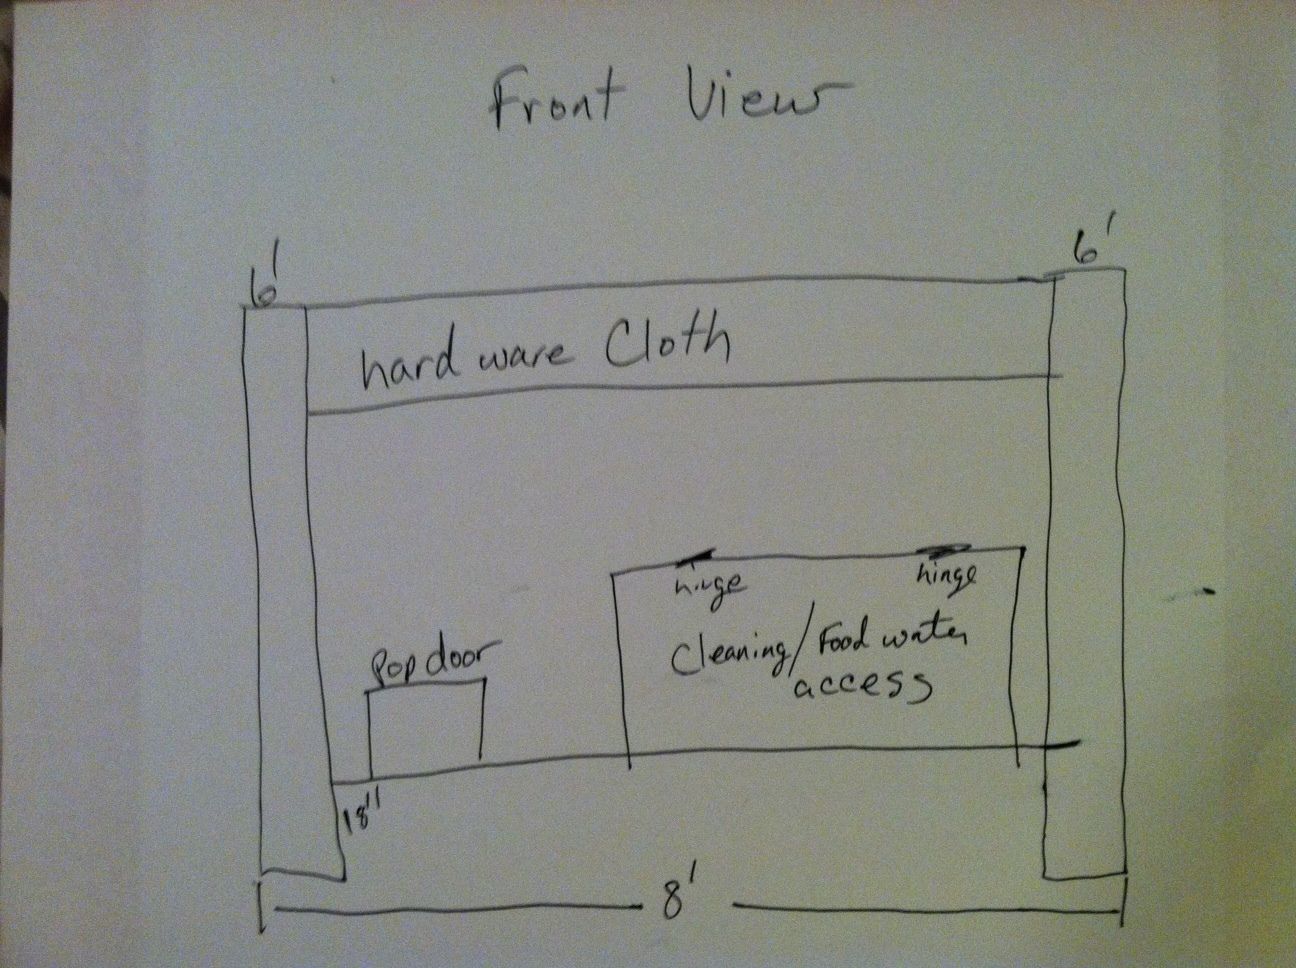 Front View
6'
6'
hardware Cloth
hinge
hinge
Cleaning/Food water
access
Pop door
18"
8'